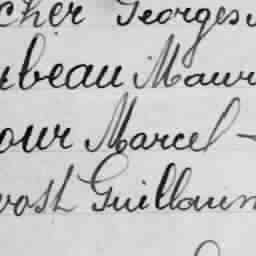 cher Georges
beau Maur
our Marcel -
vost Guillaum